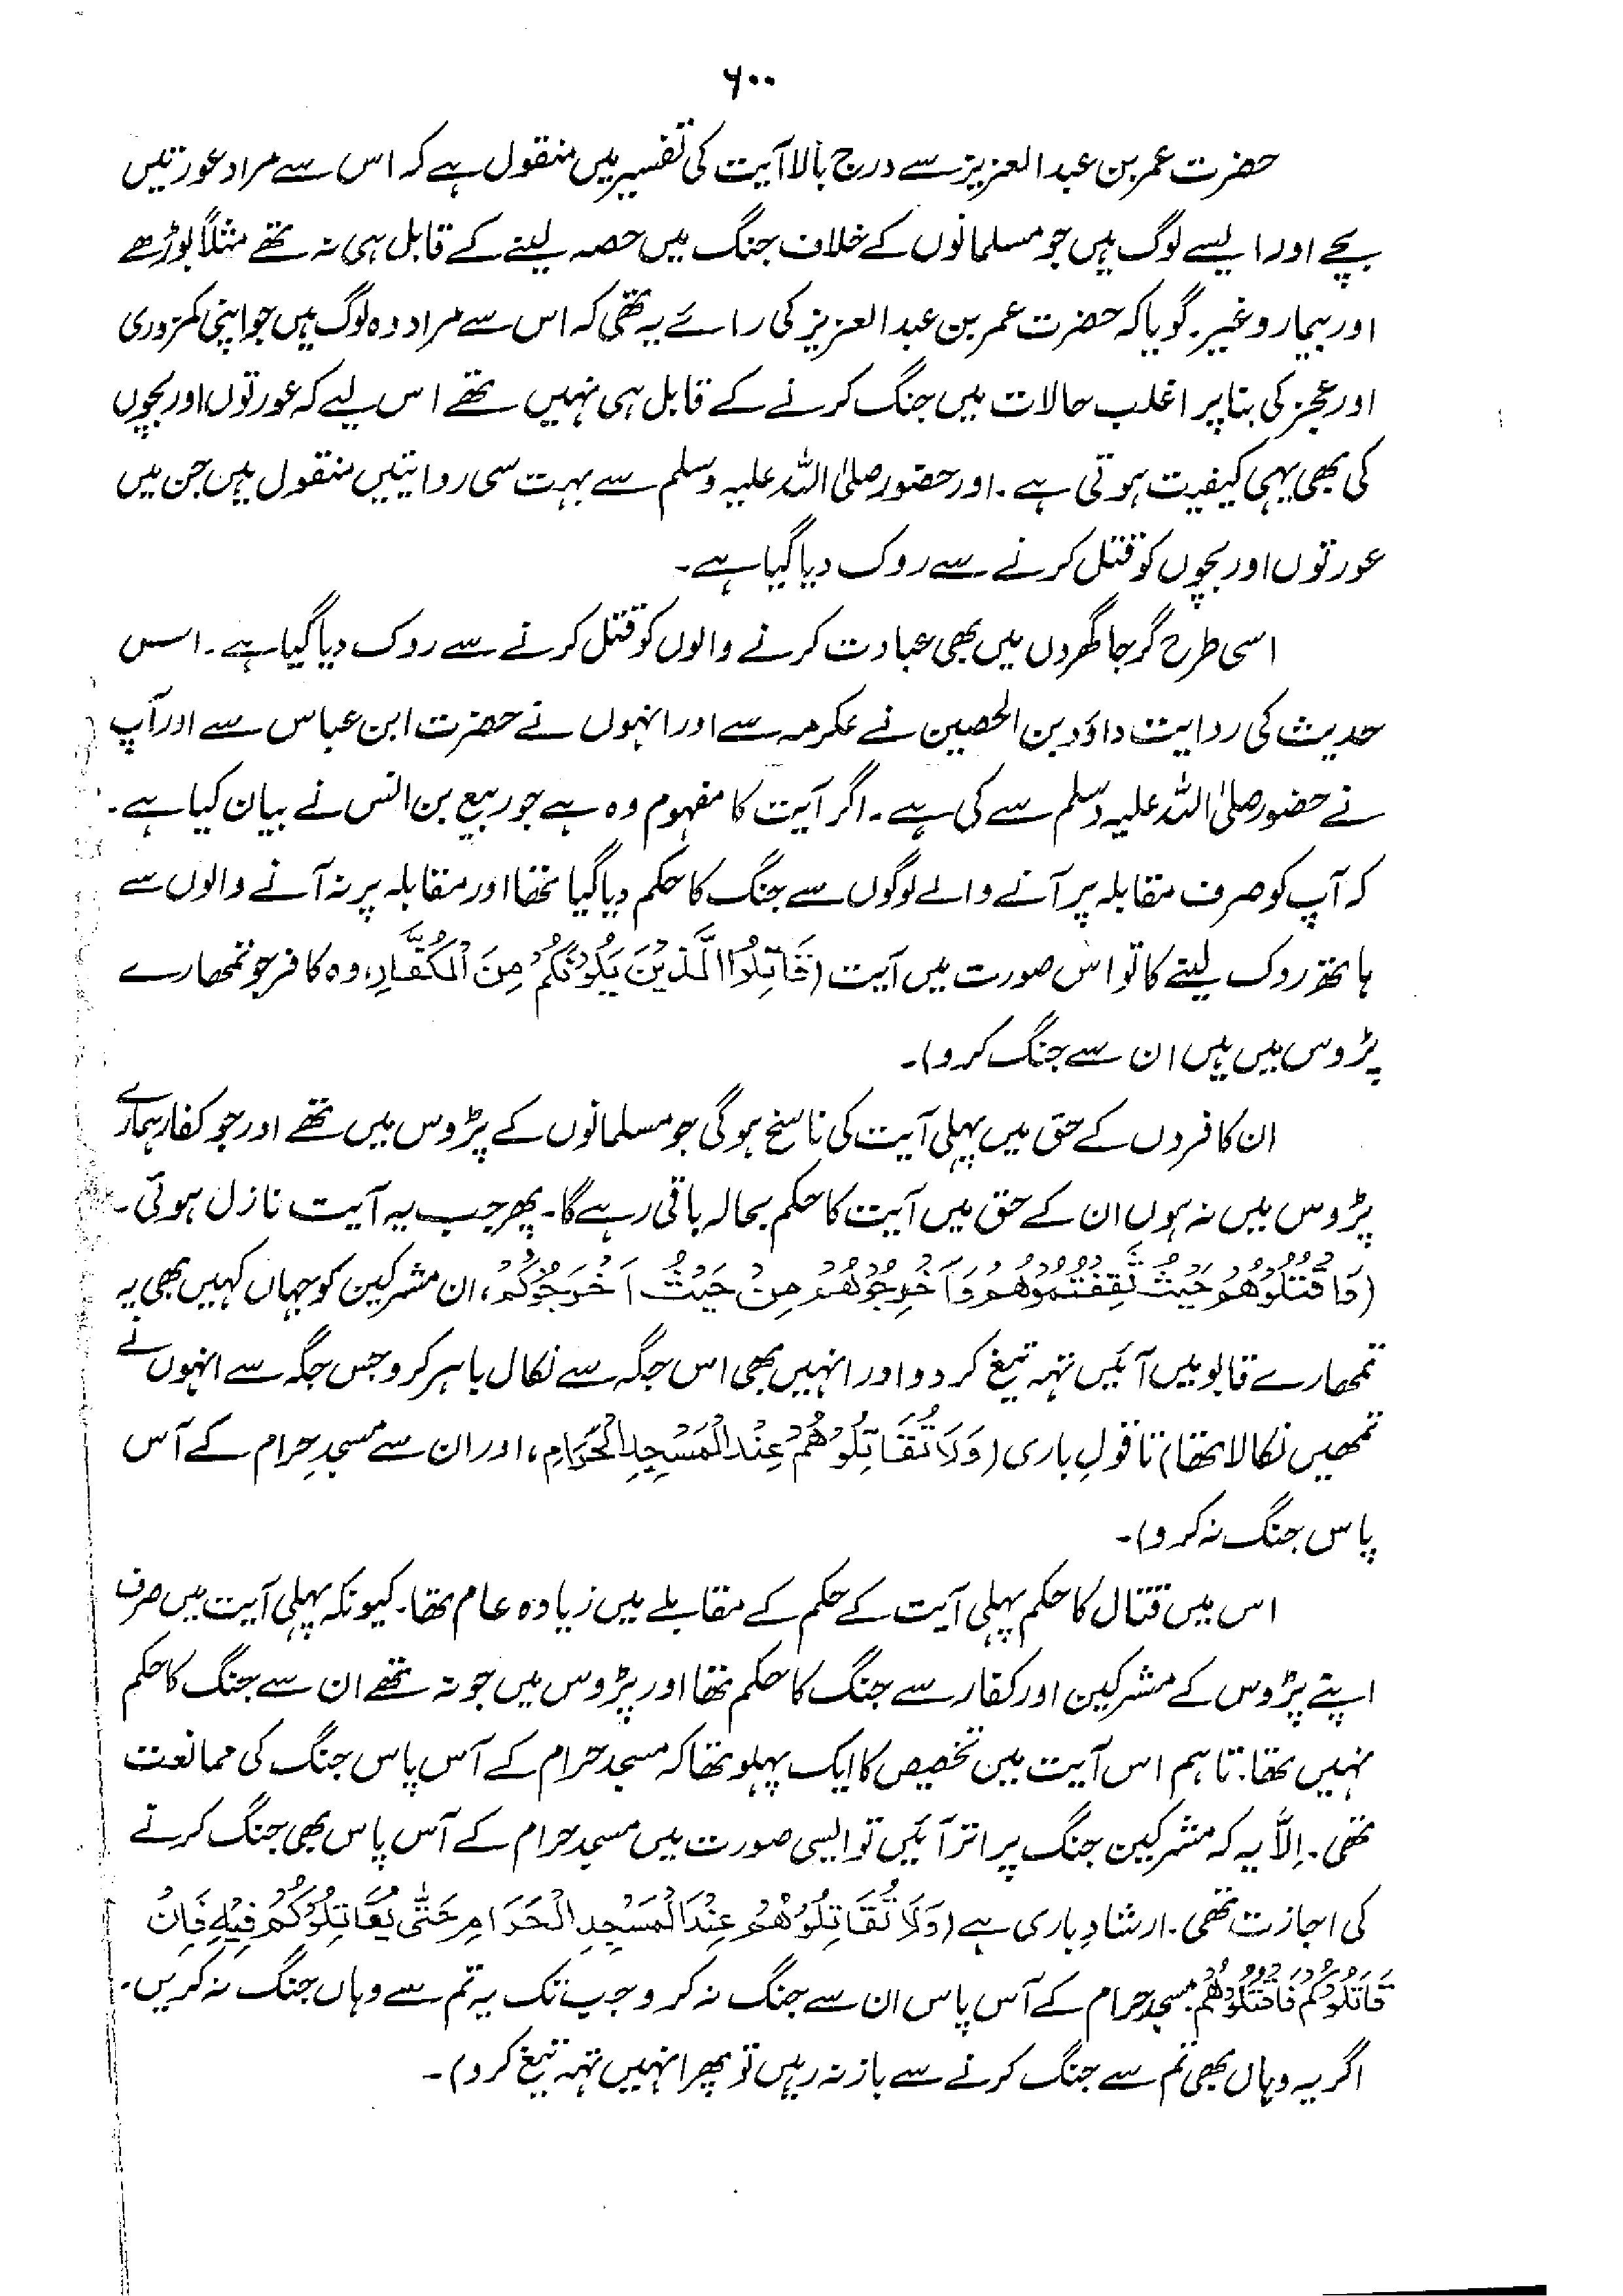 ۶۰۰
حضرت عمر بن عبد العزیز سے درج بالا آیت کی تفسیر میں منقول ہے کہ اس سے مراد عورتیں
بچے اور ایسے لوگ ہیں جو مسلمانوں کے خلاف جنگ میں حصہ لینے کے قابل ہی نہ تھے مثلاً بوڑھے
اور بیمار وغیر۔ گویا کہ حضرت عمر بن عبد العزیز کی رائے یہ تھی کہ اس سے مراد وہ لوگ ہیں جو اپنی کمزوری
اور عجز کی بنا پر اغلب حالات میں جنگ کرنے کے قابل ہی نہیں تھے اس لیے کہ عورتوں اور بچوں
کی بھی یہی کیفیت ہوتی ہے۔ اور حضور صلی اللہ علیہ وسلم سے بہت سی روایتیں منقول ہیں جن میں
عورتوں اور بچوں کو قتل کرنے سے روک دیا گیا ہے۔
اسی طرح گرجا گھروں میں بھی عبادت کرنے والوں کو قتل کرنے سے روک دیا گیا ہے۔ اس
حدیث کی روایت داؤد بن الحصین نے عکرمہ سے اور انہوں نے حضرت ابن عباس سے اور آپ
نے حضور صلی اللہ علیہ وسلم سے کی ہے۔ اگر آیت کا مفہوم وہ ہے جو ربیع بن انس نے بیان کیا ہے۔
کہ آپ کو صرف مقابلہ پر آنے والے لوگوں سے جنگ کا حکم دیا گیا تھا اور مقابلہ پر نہ آنے والوں سے
ہاتھ روک لینے کا تو اس صورت میں آیت (قَاتِلُوا الَّذِيْنَ يَلُوْنَكُمْ مِنَ الْكُفَّارِ، وہ کافر جو تمھارے
پڑوس میں ہیں ان سے جنگ کرو)۔
ان کافروں کے حق میں پہلی آیت کی ناسخ ہوگی جو مسلمانوں کے پڑوس میں تھے اور جو کفار ہمارے
پڑوس میں نہ ہوں ان کے حق میں آیت کا حکم بحالہ باقی رہے گا۔ پھر جب یہ آیت نازل ہوئی۔
(وَاقْتُلُوْهُمْ حَيْثُ ثَقِفْتُمُوْهُمْ وَأَخْرِجُوْهُمْ مِنْ حَيْثُ اَخْرَجُوْكُمْ، ان مشرکین کو جہاں کہیں بھی یہ
تمھارے قابو میں آئیں تہہ تیغ کر دو اور انہیں بھی اس جگہ سے نکال باہر کرو جس جگہ سے انہوں نے
تمھیں نکالا تھا) تا قولِ باری (وَلَا تُقَاتِلُوْهُمْ عِنْدَ الْمَسْجِدِ الْحَرَامِ، اور ان سے مسجدِ حرام کے آس
پاس جنگ نہ کرو)۔
اس میں قتال کا حکم پہلی آیت کے حکم کے مقابلے میں زیادہ عام تھا۔ کیونکہ پہلی آیت میں صرف
اپنے پڑوس کے مشرکین اور کفار سے جنگ کا حکم تھا اور پڑوس میں جو نہ تھے ان سے جنگ کا حکم
نہیں تھا۔ تاہم اس آیت میں تخصیص کا ایک پہلو تھا کہ مسجد حرام کے آس پاس جنگ کی ممانعت
تھی۔ اِلّا یہ کہ مشرکین جنگ پر اتر آئیں تو ایسی صورت میں مسجد حرام کے آس پاس بھی جنگ کرنے
کی اجازت تھی۔ ارشادِ باری ہے (وَلَا تُقَاتِلُوْهُمْ عِنْدَ الْمَسْجِدِ الْحَرَامِ حَتّٰى يُقَاتِلُوْكُمْ فِيْهِ فَاِنْ
قَاتَلُوْكُمْ فَاقْتُلُوْهُمْ، مسجد حرام کے آس پاس ان سے جنگ نہ کرو جب تک یہ تم سے وہاں جنگ نہ کریں۔
اگر یہ وہاں بھی تم سے جنگ کرنے سے باز نہ رہیں تو پھر انہیں تہہ تیغ کرو)۔